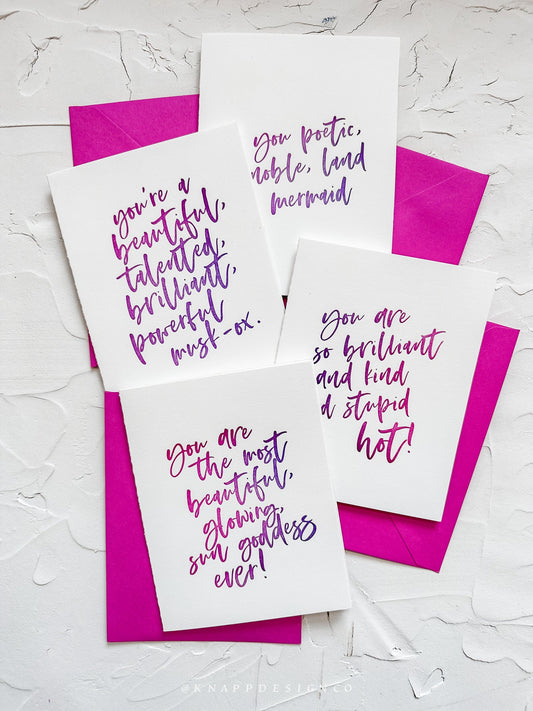 you poetic,
noble, land
mermaid
you're a
beautiful,
talented,
brilliant,
powerful
musk-ox.
you are
so brilliant
and kind
d stupid
hot!
you are
the most
beautiful,
glowing,
sun goddess
ever!
@KNAPPDESIGNCO